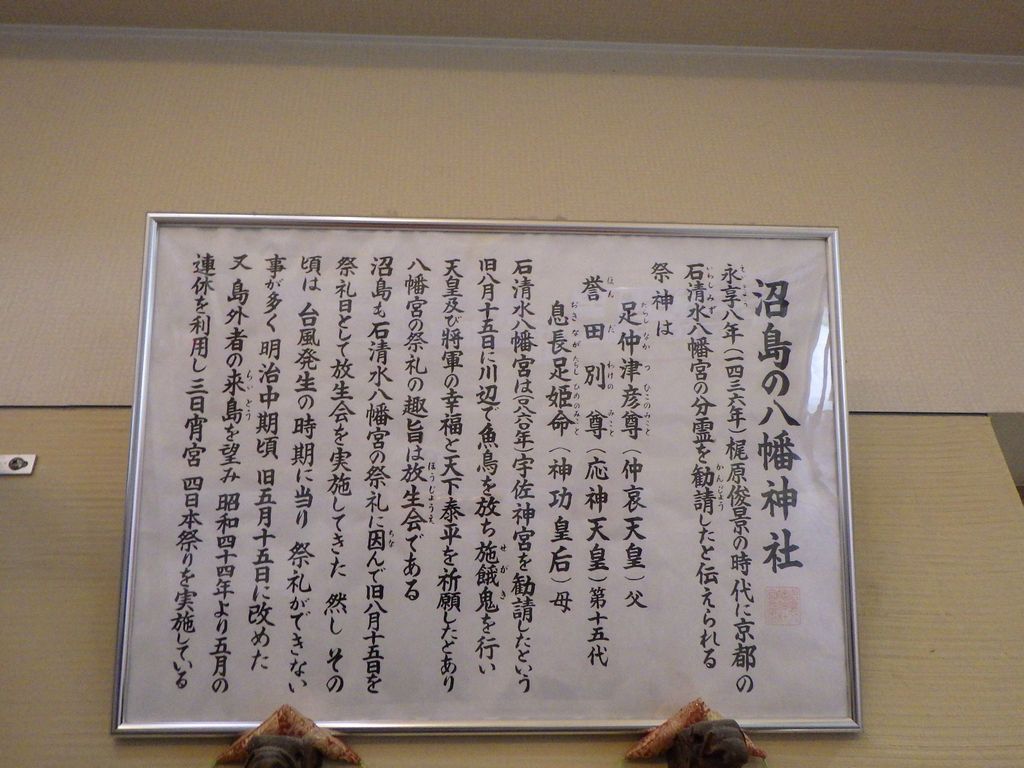 沼島の八幡神社
永享八年(一四三六年)梶原俊景の時代に京都の
石清水八幡宮の分霊を勧請したと伝えられる
祭神は
足仲津彦尊(仲哀天皇)父
誉田別尊(応神天皇)第十五代
息長足姫命(神功皇后)母
石清水八幡宮は(八六〇年)宇佐神宮を勧請したという
旧八月十五日に川辺で魚鳥を放ち施餓鬼を行い
天皇及び将軍の幸福と天下泰平を祈願したとあり
八幡宮の祭礼の趣旨は放生会である
沼島も石清水八幡宮の祭礼に因んで旧八月十五日を
祭礼日として放生会を実施してきた 然し その
頃は 台風発生の時期に当り 祭礼ができない
事が多く 明治中期頃 旧五月十五日に改めた
又 島外者の来島を望み 昭和四十四年より五月の
連休を利用し三日宵宮 四日本祭りを実施している